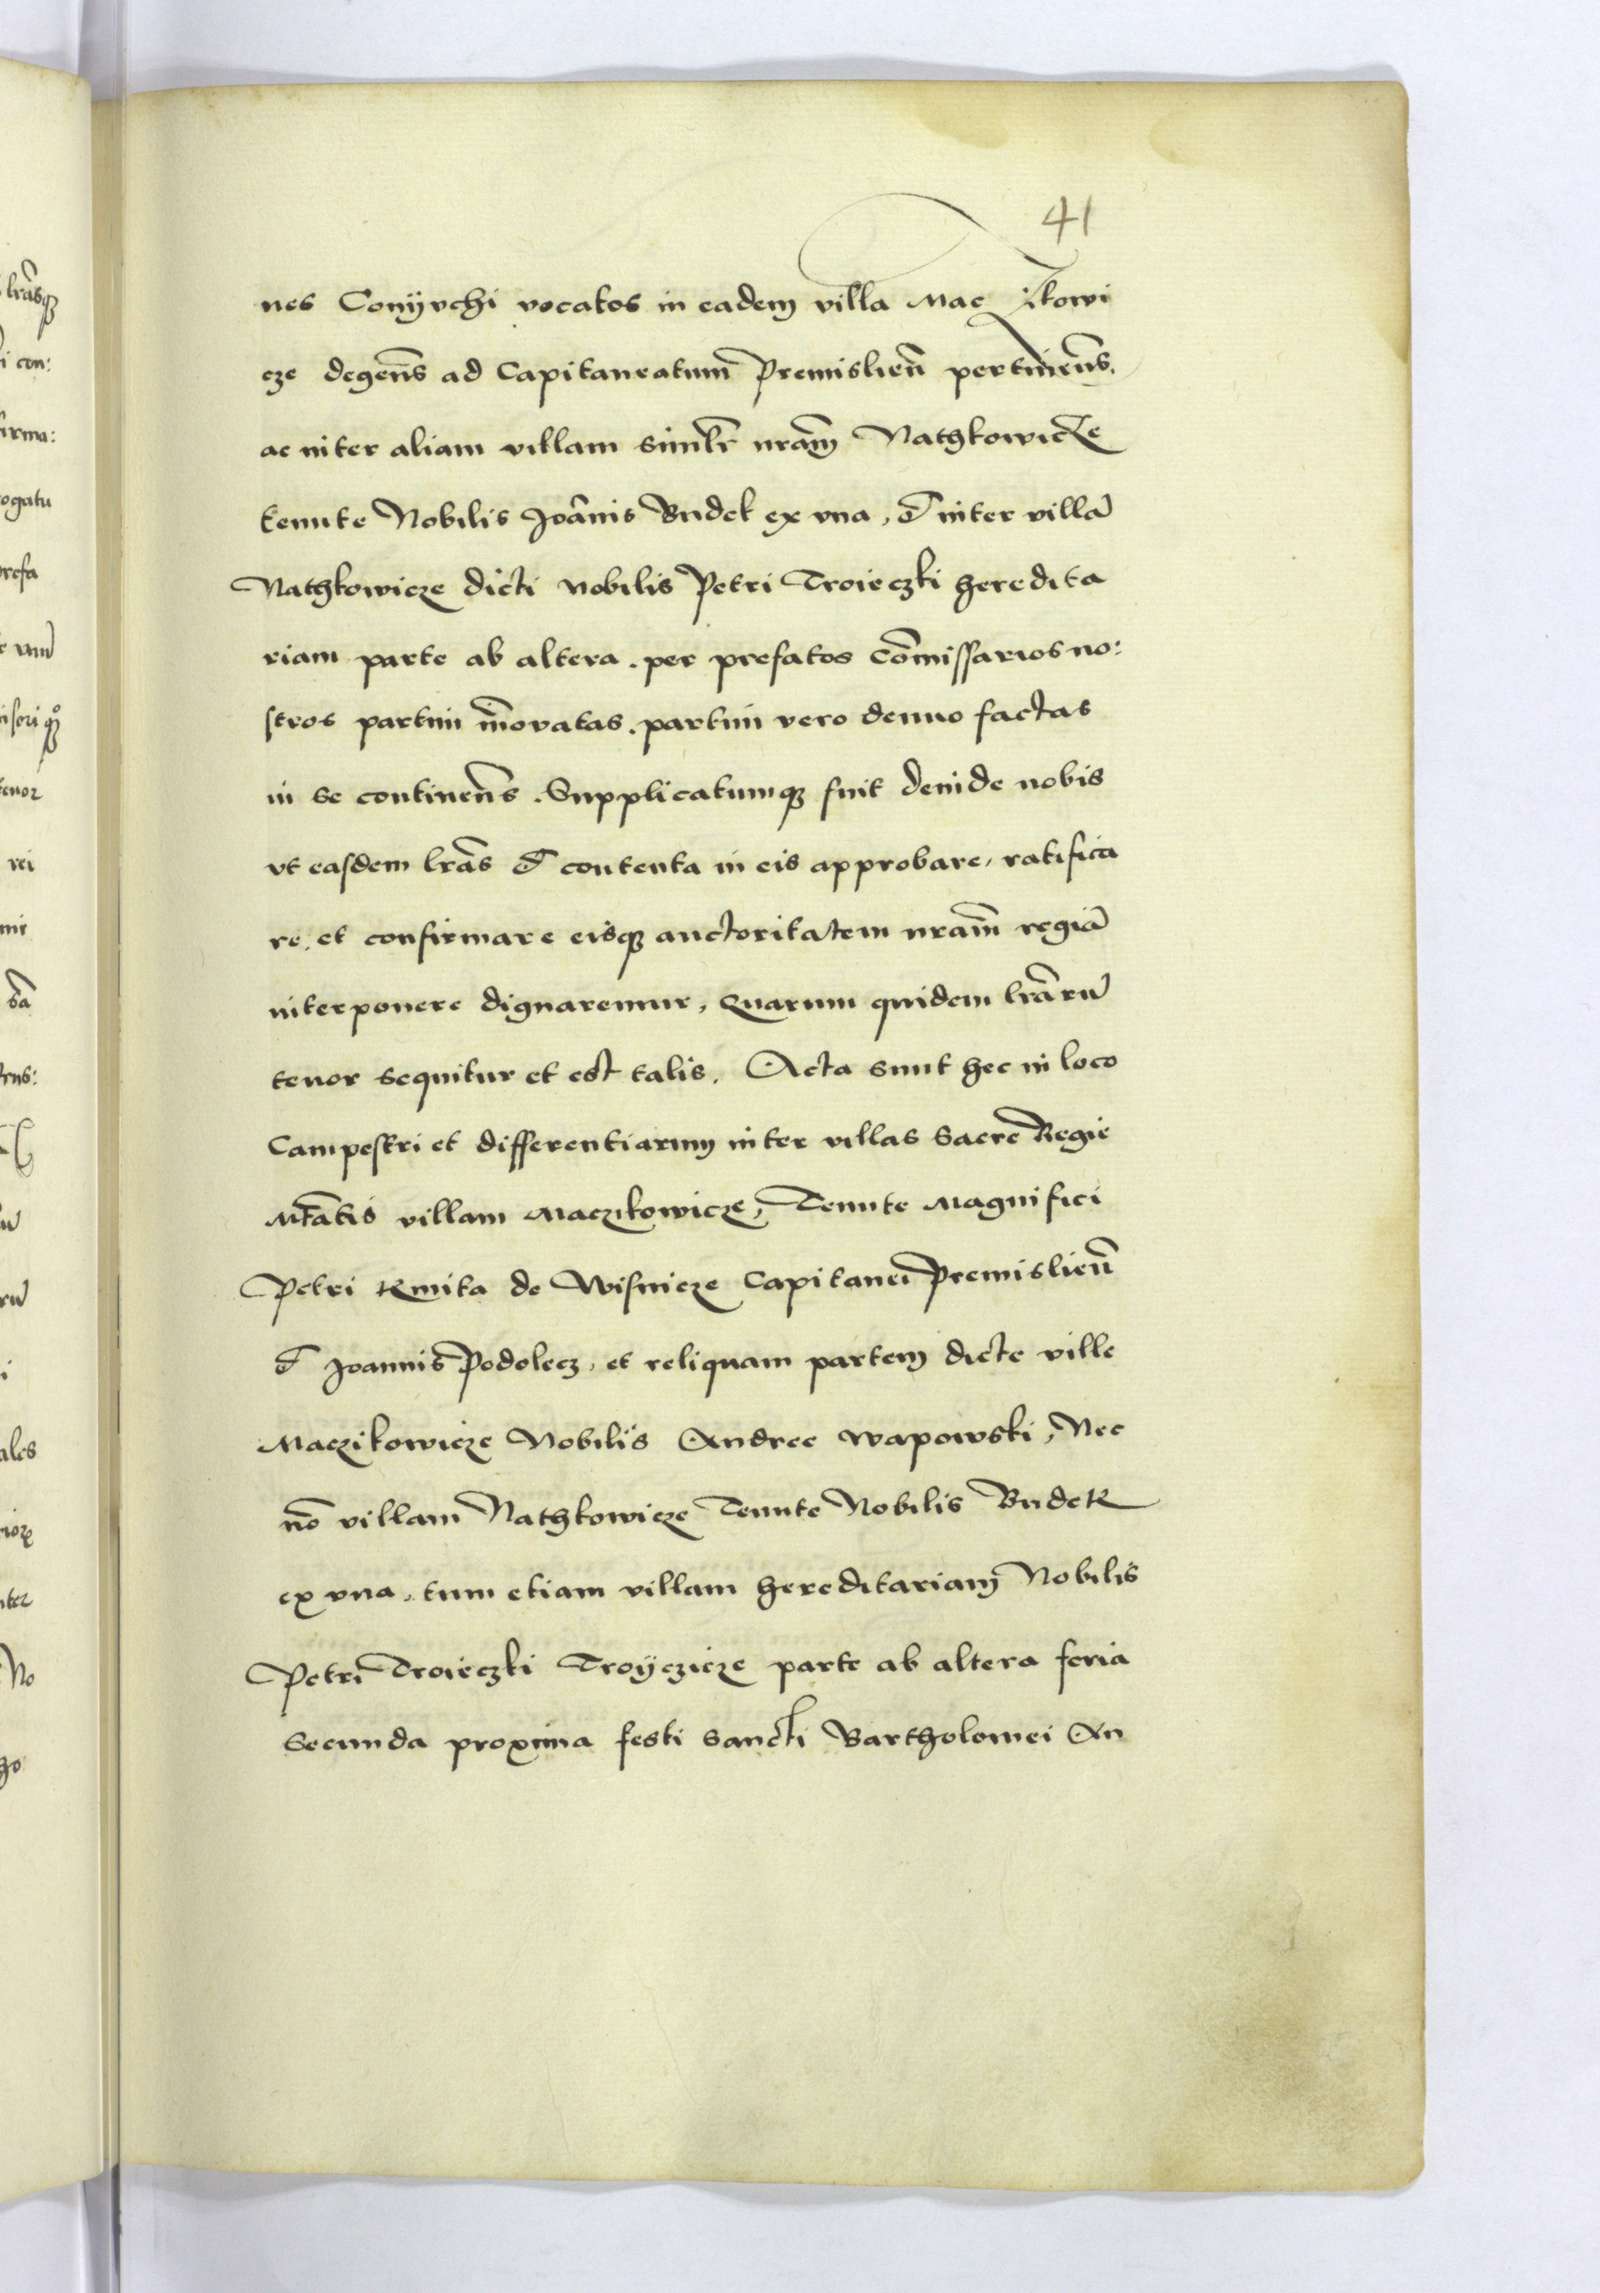 41
nes Conÿvchi vocatos in eadem villa Maczkowi
cze degen̄s ad Capitaneatum̄ Premislien̄ pertinen̄s.
ac inter aliam villam similr̄ nr̄am Nathkowicze
tenute Nobilis Joan̄is Budek ex vna, & inter villā
Nathkowicze dicti nobilis Petri Troieczki heredita
riam parte ab altera. per prefatos Cōmissarios no:
stros partim iñovatas. partim vero denuo factas
in se continen̄s. Supplicatumqꝫ fuit deinde nobis
vt easdem lr̄as & contenta in eis approbare, ratifica
re, et confirmare eisqꝫ auctoritatem nr̄am regiā
interponere dignaremur, Quarum quidem lr̄arū
tenor sequitur et est talis. Acta sunt hec in loco
Campestri et differentiarum inter villas Sacre Regie
Mtātis villam Maczkowicze, Tenute Magnifici
Petri Kmita de Wisnicze Capitanei Premislien̄
& Joannis Podolecz, et reliquam partem dicte ville
Maczikowicze Nobilis Andree Wapowski, Nec
nō villam Nathkowicze Tenute Nobilis Budek
ex vna, tum etiam villam hereditariam Nobilis
Petri Troieczki Troÿczicze parte ab altera feria
Secunda proxima festi Sancti Bartholomei An
lr̄asqꝫ
i con:
firma:
rogatu
prefa
tenor
rei
ales
No